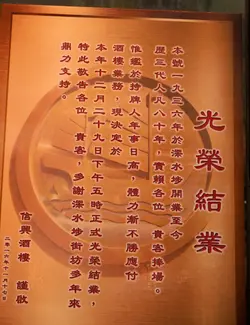 光榮結業
本號一九三六年於深水埗開業至今
歷三代人凡八十年，實賴各位　貴客捧場。
惟鑑於持牌人年事日高，體力漸不勝應付
酒樓業務，現決定於
本年十二月二十九日下午五時正式光榮結業，
特此敬告各位　貴客，多謝深水埗街坊多年來
鼎力支持。
信興酒樓　謹啟